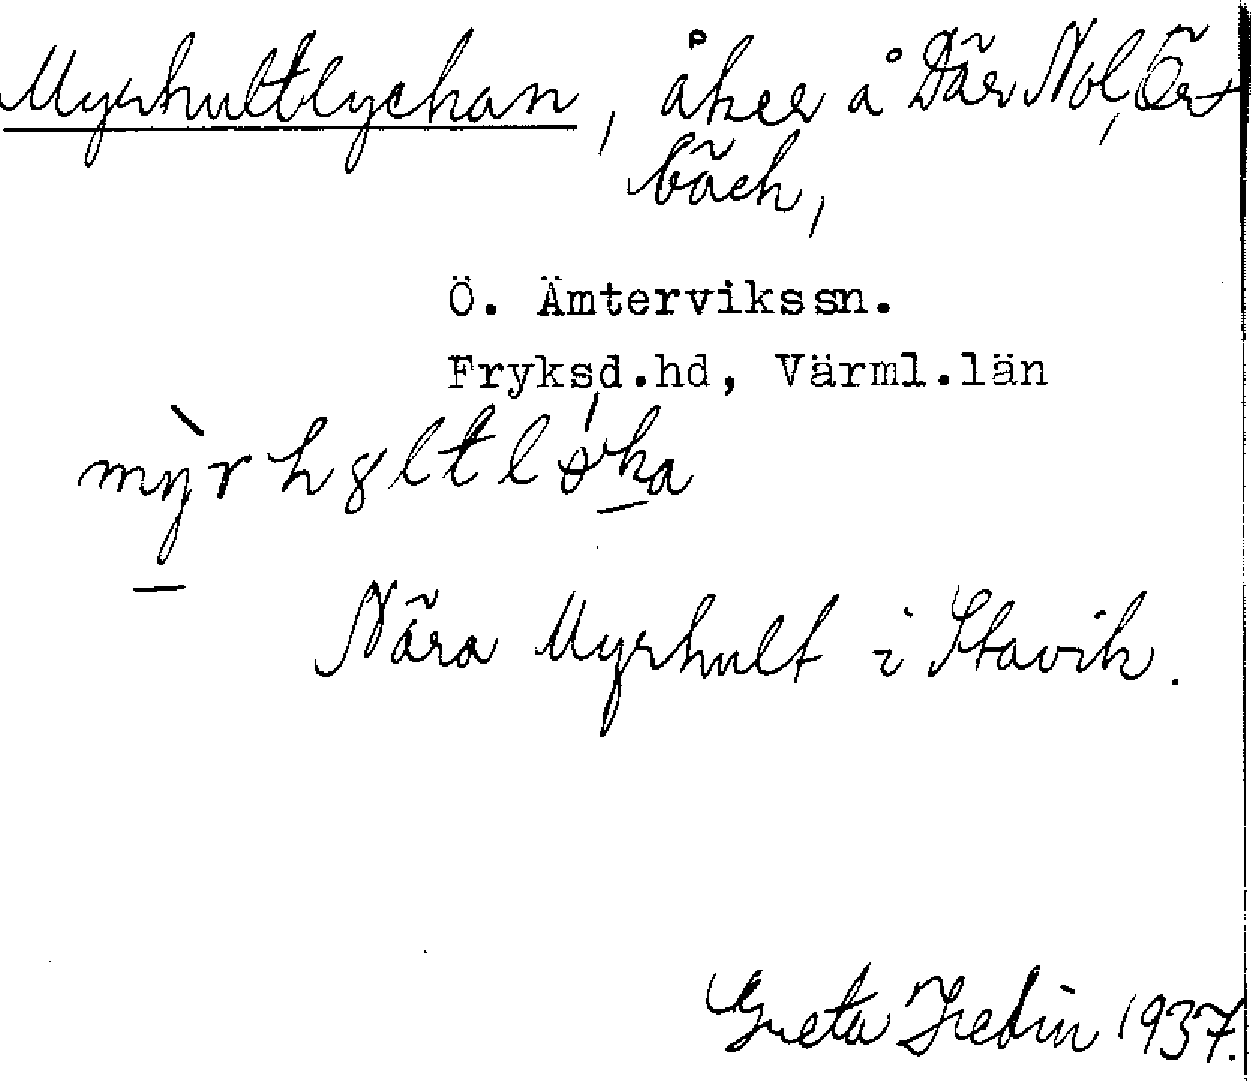 Myrhultlyckan, åker å Där Nol, Öst
bäck,
Ö. Ämtervikssn.
Fryksd.hd, Värml.län
Nära Myrhult i Stavik.
Greta Hedin 1937.